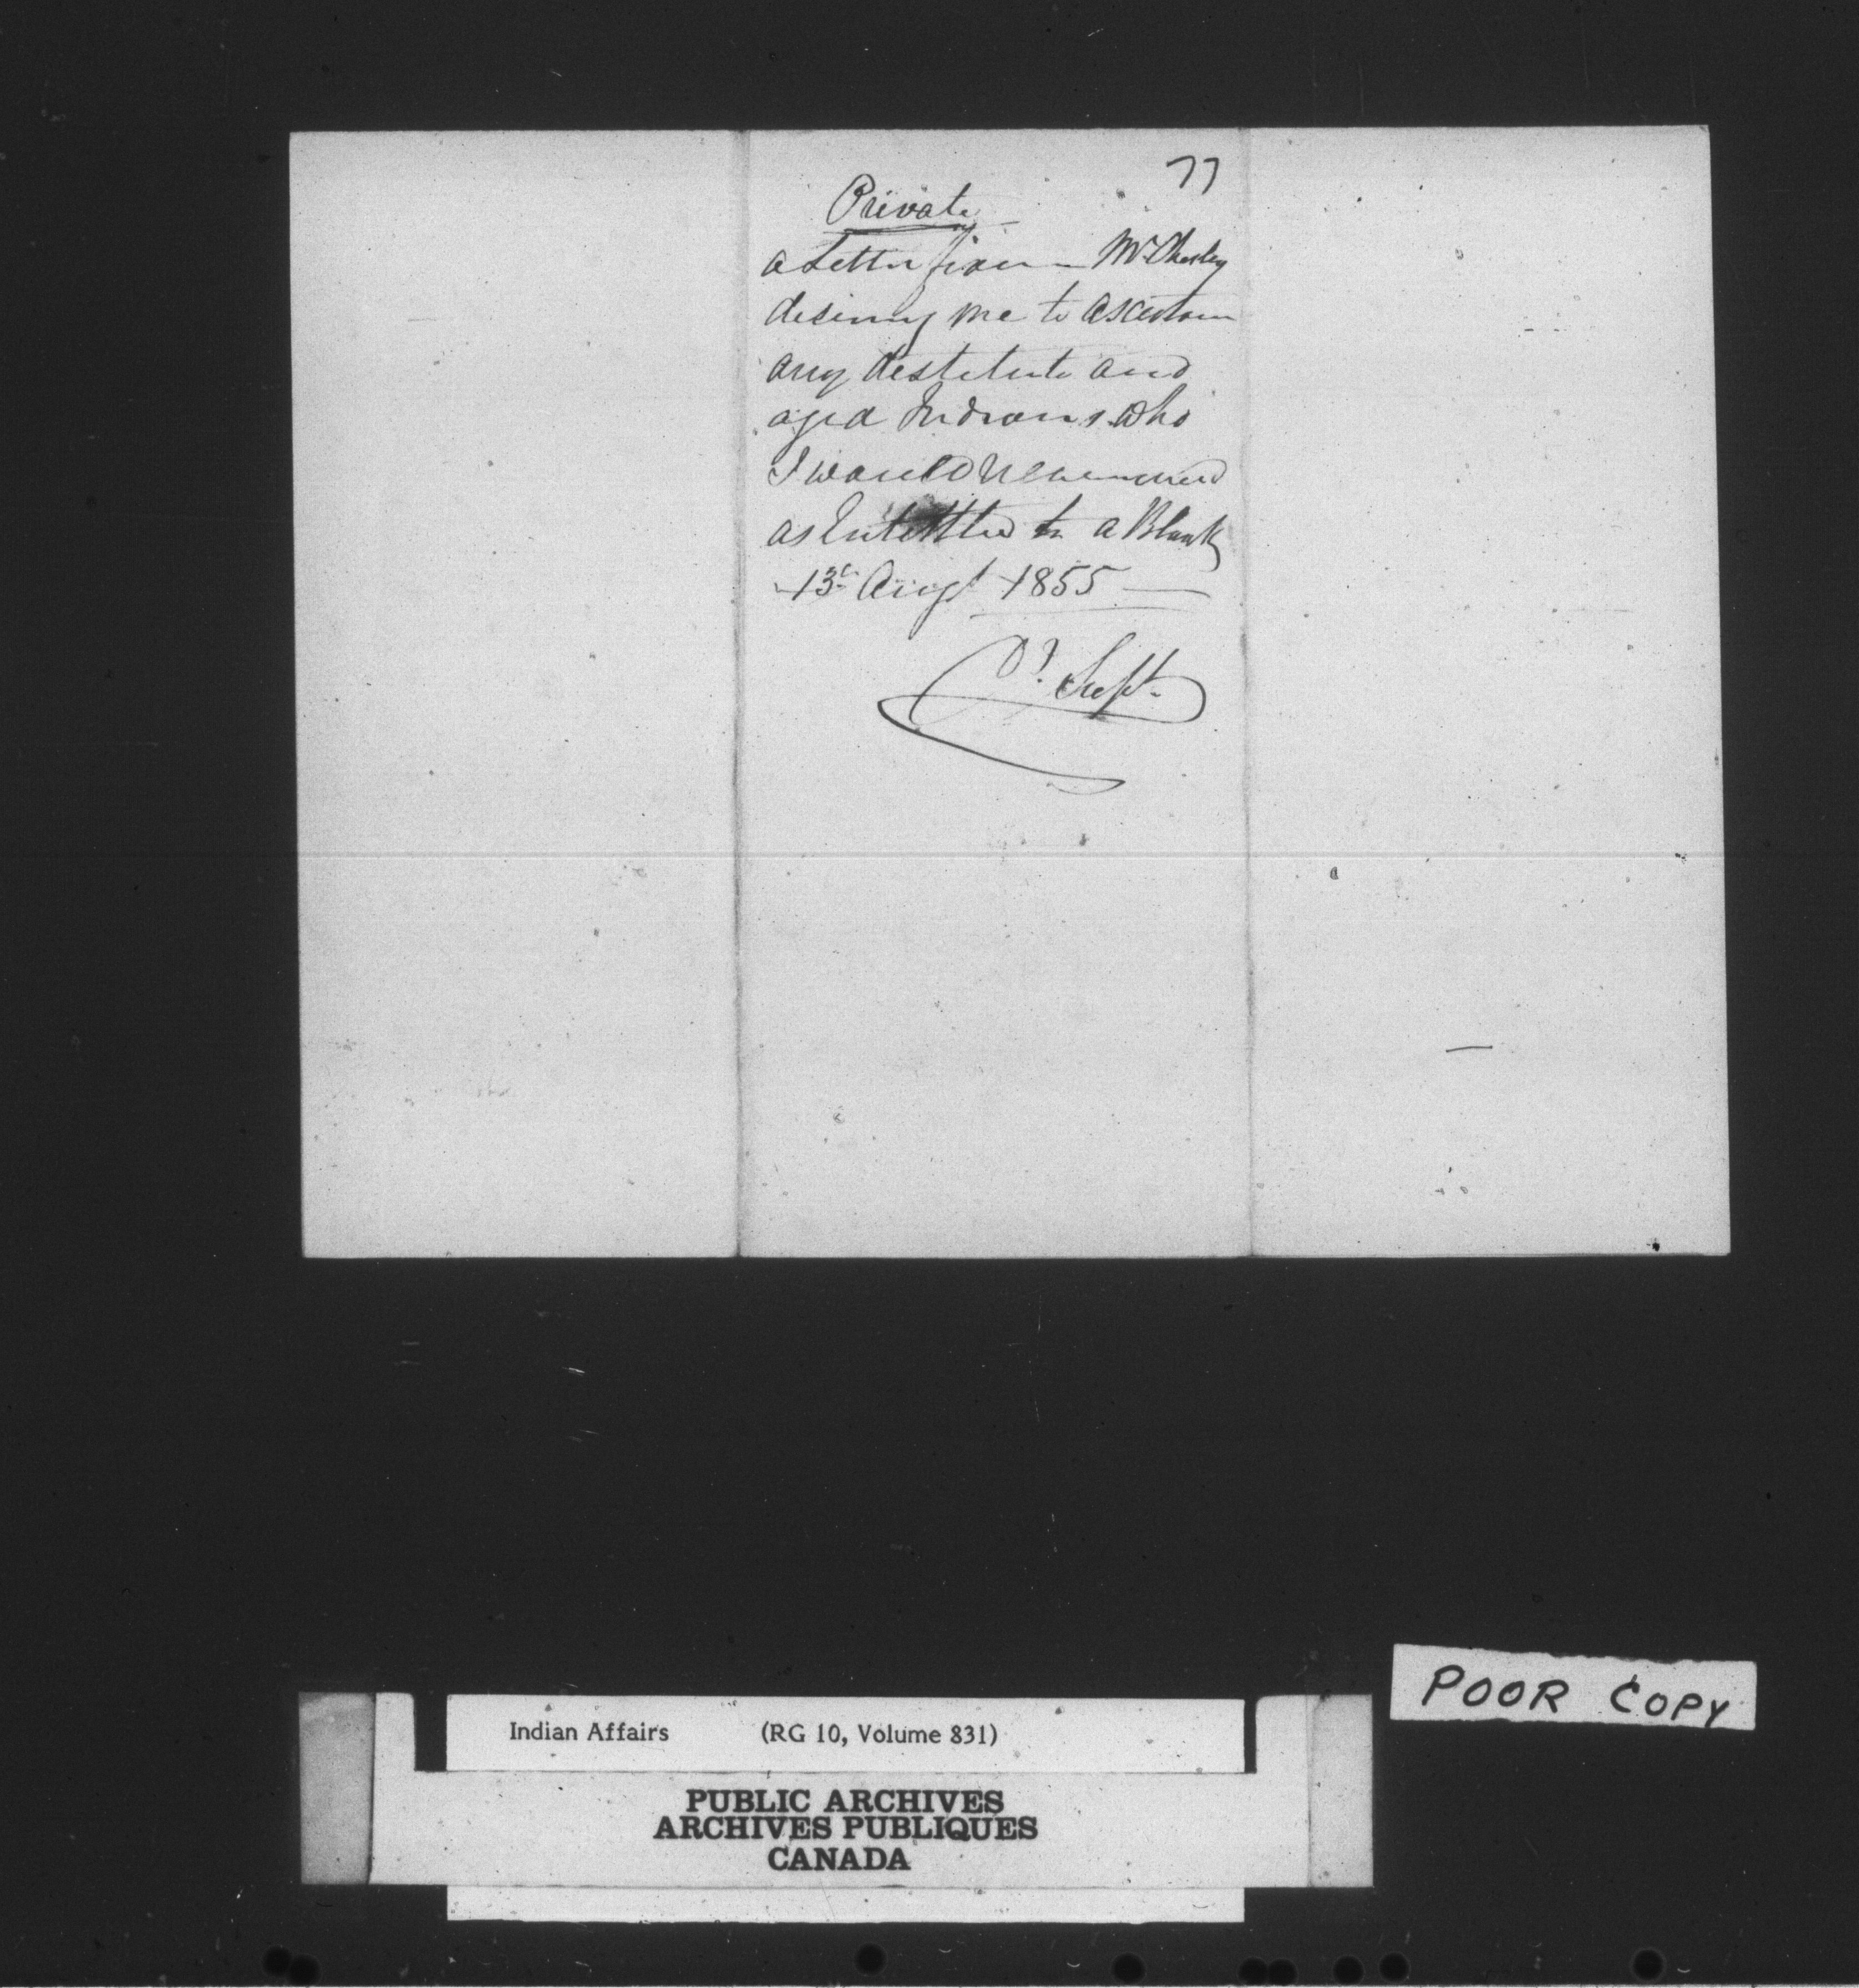 77
Private
a Letter from Mr Chesley
desiring me to ascertain
any destitute and
aged Indians who
I would recommend
as Intittled to a Blank
13t Augt 1855
Dt. Supt.
POOR COPY
Indian Affairs (RG 10, Volume 831)
PUBLIC ARCHIVES
ARCHIVES PUBLIQUES
CANADA